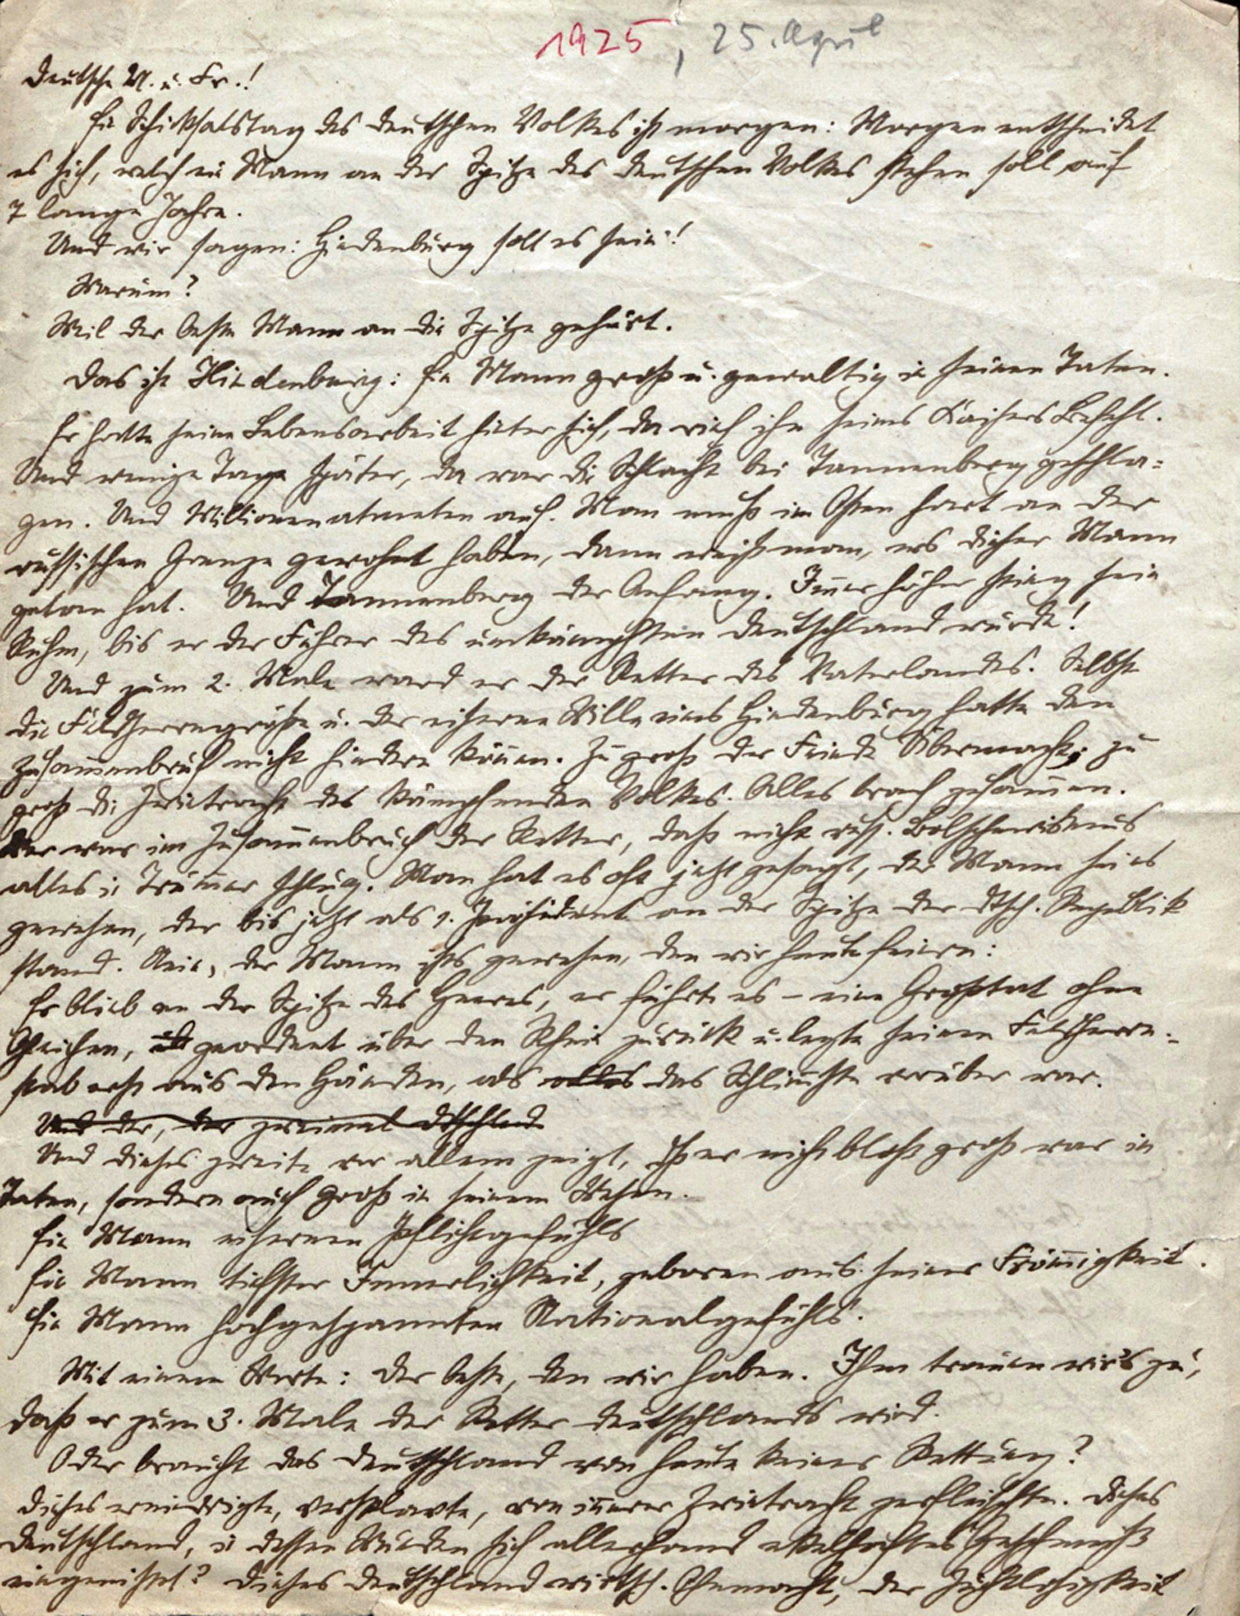 1925, 25. April
Deutsche M. u. Fr.!
Ein Schicksalstag des deutschen Volkes ist morgen: Morgen entscheidet
es sich, welch ein Mann an der Spitze des deutschen Volkes stehen soll auf
7 lange Jahre.
Und wir sagen: Hindenburg soll es sein!
Warum?
Weil der beste Mann an die Spitze gehört.
Das ist Hindenburg: Ein Mann groß u. gewaltig in seinen Taten.
Er hatte seine Lebensarbeit hinter sich, da rief ihn seines Kaisers Befehl.
Und wenige Tage später, da war die Schlacht bei Tannenberg geschla-
gen. Und Millionen atmeten auf. Man muß im Osten hart an der
russischen Grenze gewohnt haben, dann weiß man, was dieser Mann
getan hat. Und Tannenberg der Anfang. Immer höher stieg sein
Ruhm, bis er der Führer des umkämpften Deutschland wurde!
Und zum 2. Male ward er der Retter des Vaterlandes. Selbst
die Feldherrngröße u. der eiserne Wille eines Hindenburg hatte den
Zusammenbruch nicht hindern können. Zu groß der Feinde Übermacht, zu
groß die Zwietracht des kämpfenden Volkes. Alles brach zusammen.
Wer war im Zusammenbruch der Retter, daß nicht russ. Bolschewismus
alles in Trümmer schlug. Man hat es oft jetzt gesagt, der Mann sei es
gewesen, der bis jetzt als 1. Präsident an der Spitze der dtsch. Republik
stand. Nein, der Mann ists gewesen, den wir heute feiern:
Er blieb an der Spitze des Heeres, er führte es – eine Großtat ohne
Gleichen, geordnet über den Rhein zurück u. legte seinen Feldherrn-
stab erst aus den Händen, als alles das Schlimmste vorüber war.
Und der, der zweimal Dtschland
Und dieses zweite vor allem zeigt, daß er nicht bloß groß war in
Taten, sondern auch groß in seinem Wesen.
Ein Mann eisernen Pflichtgefühls
Ein Mann tiefster Innerlichkeit, geboren aus seiner Frömmigkeit.
Ein Mann hochgespannten Nationalgefühls.
Mit einem Worte: Der beste, den wir haben. Ihm trauen wir's zu,
daß er zum 3. Male der Retter Deutschlands wird.
Oder braucht das Deutschland von heute keiner Rettung?
Dieses erniedrigte, versklavte, von innerer Zwietracht zerfleischte. Dieses
Deutschland, in dessen Wunden sich allerhand ekelhaftes Geschmeiß
eingenistet? Dieses Deutschland wirtsch. Ohnmacht, der Zuchtlosigkeit